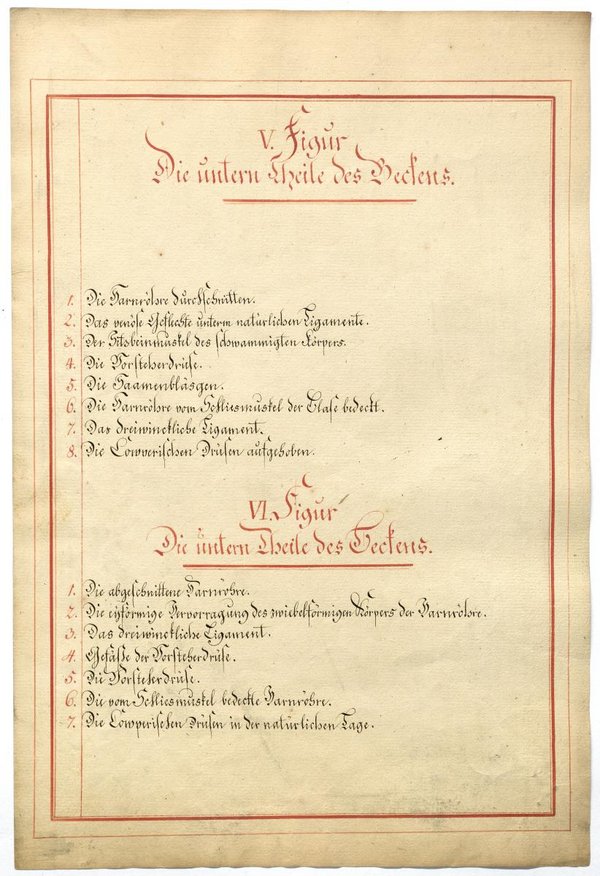 V. Figur
Die untern Theile des Beckens.
1. Die Harnröhre durchschnitten.
2. Das venöse Geflechte unterm natürlichen Ligamente.
3. Der Sitsbeinmuskel des schwammigten Körpers.
4. Die Vorsteherdrüse.
5. Die Saamenbläsgen.
6. Die Harnröhre vom Schliesmuskel der Blase bedeckt.
7. Das dreiwinckliche Ligament.
8. Die Cowperischen Drüsen aufgehoben.
VI. Figur
Die untern Theile des Beckens.
1. Die abgeschnittene Harnröhre.
2. Die eyförmige Hervorragung des zwiebelförmigen Körpers der Harnröhre.
3. Das dreiwinckliche Ligament.
4. Gefäße der Vorsteherdrüse.
5. Die Vorsteherdrüse.
6. Die vom Schliesmuskel bedeckte Harnröhre.
7. Die Cowperischen Drüsen in der natürlichen Lage.